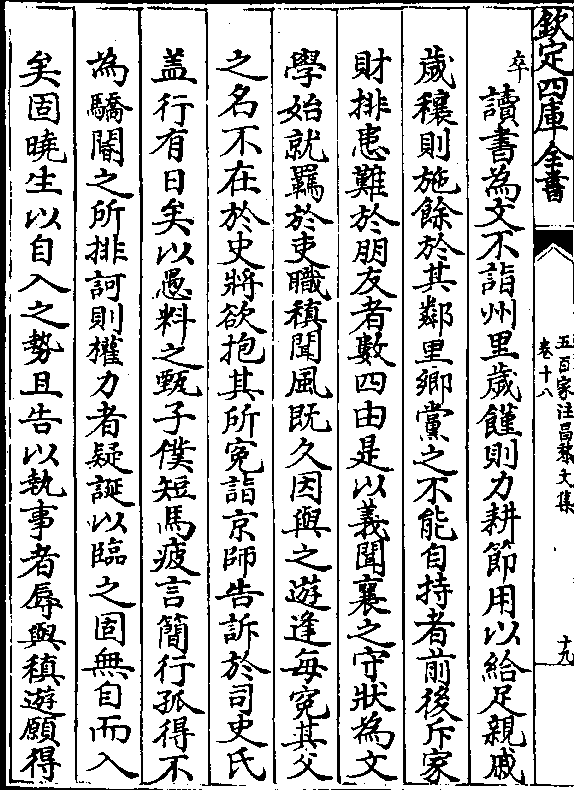 欽定四庫全書
五百家注昌黎文集
卷十八
十九
卒讀書為文不詣州里歲饉則力耕節用以給足親戚
歲穰則施餘於其鄰里鄉黨之不能自持者前後斥家
財排患難於朋友者數四由是以義聞襄之守狀為文
學始就羈於吏職稹聞風既久因與之遊逢每寃其父
之名不在於史將欲抱其所寃詣京師告訴於司史氏
盖行有日矣以愚料之甄子僕短馬疲言簡行孤得不
為驕閽之所排訶則權力者疑誕以臨之固無自而入
矣固曉生以自入之勢且告以執事者辱與稹遊願得